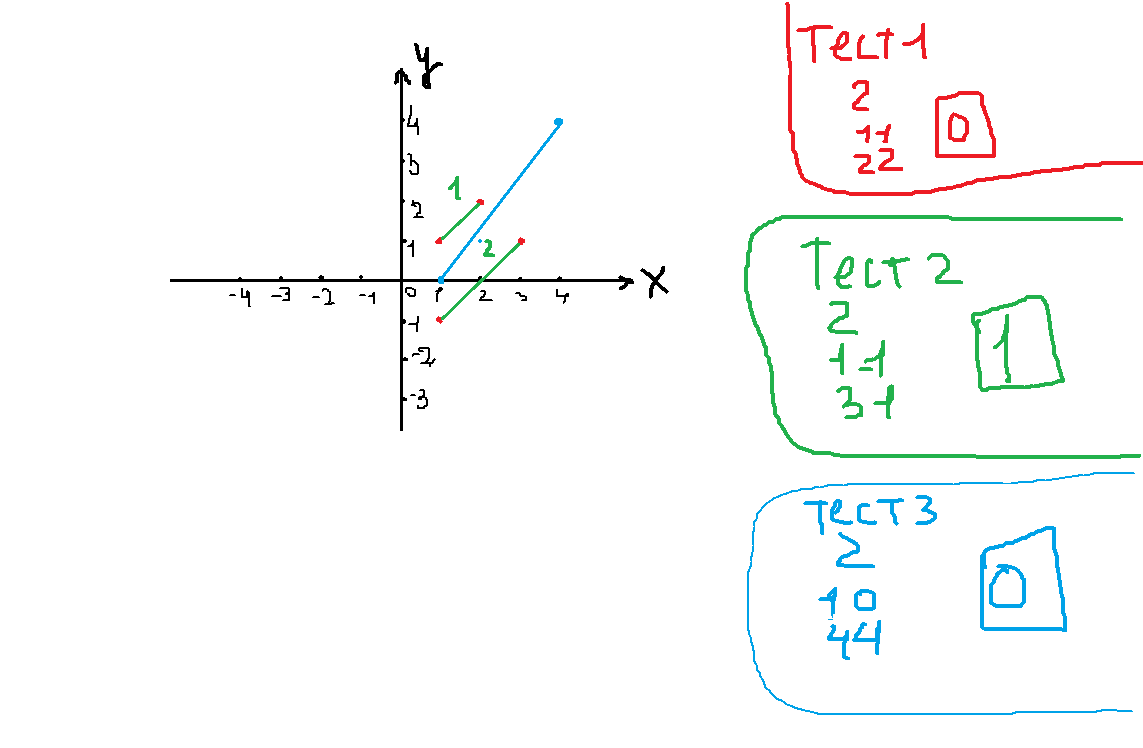 y
4
3
2
1
1
2
-4 -3 -2 -1 0 1 2 3 4 X
-1
-2
-3
Тест 1
2
1 1
2 2
0
Тест 2
2
1 -1
3 1
1
Тест 3
2
1 0
4 4
0